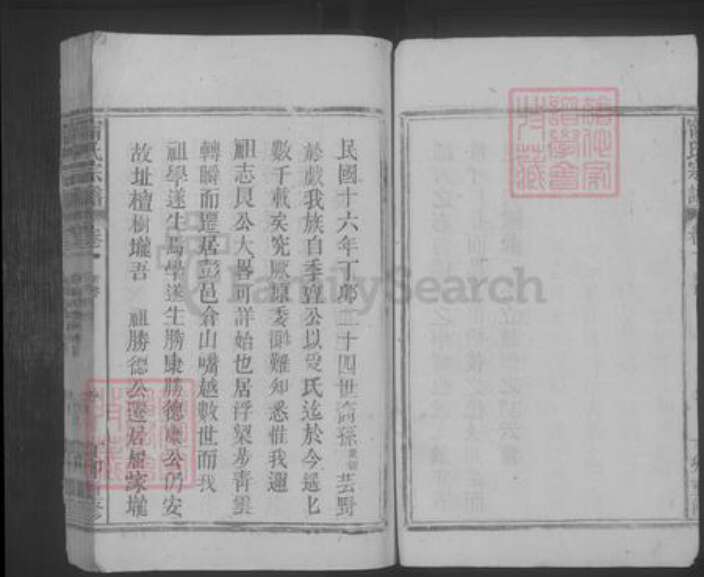 民國十六年丁卯二十四世裔孫 芸野
於戲我族自季亹公以受氏迄於今遥匕
數千載矣究厥源委頗難知悉惟我遷
祖志良公大畧可詳始也居浮梁易青雲
轉瞬而遷居彭邑倉山嘴越數世而我
祖學遂生焉學遂生勝康勝德康公仍安
故址檀樹壠吾 祖勝德公遷居屈家壠
甯氏宗譜
甯氏宗譜
FamilySearch